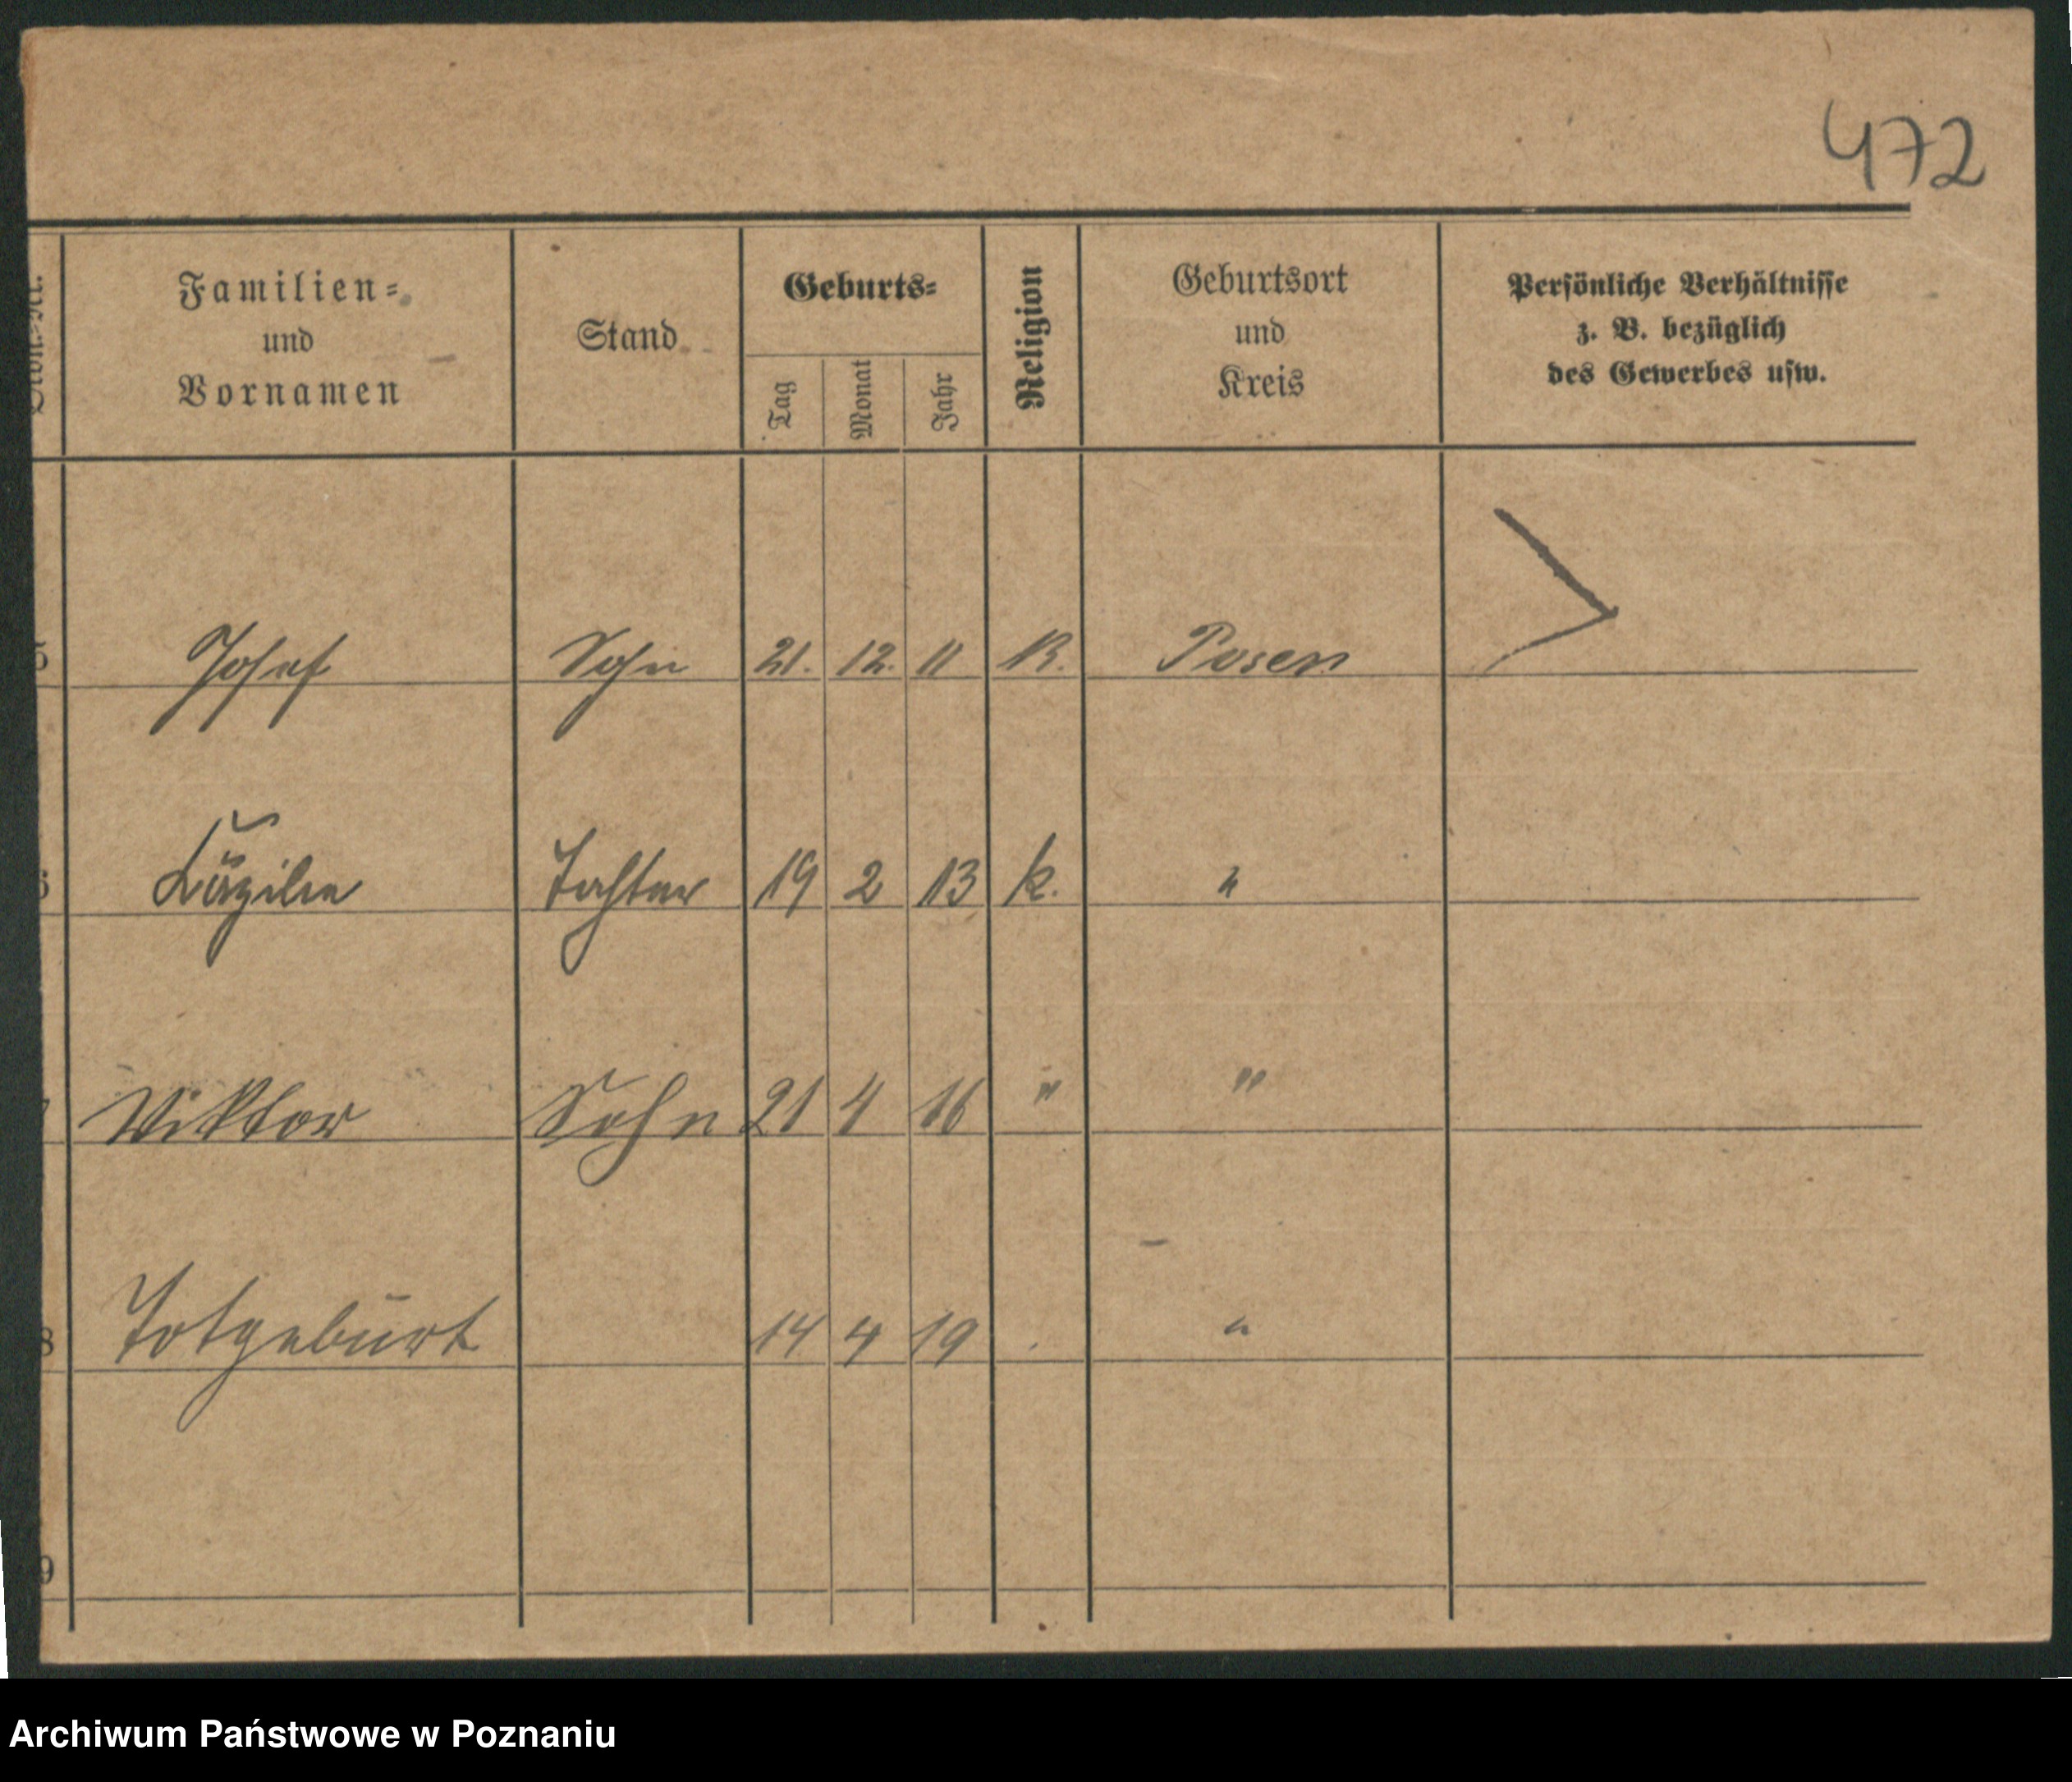 472
Familien= und Vornamen Stand Geburts= Tag Monat Jahr Religion Geburtsort und Kreis Persönliche Verhältnisse z. B. bezüglich des Gewerbes usw.
5 Josef Sohn 21. 12. 11 K. Posen
6 Käzilie Tochter 19 2 13 k. "
7 Viktor Sohn 21 4 16 " "
8 Totgeburt 14 4 19 "
9
Archiwum Państwowe w Poznaniu